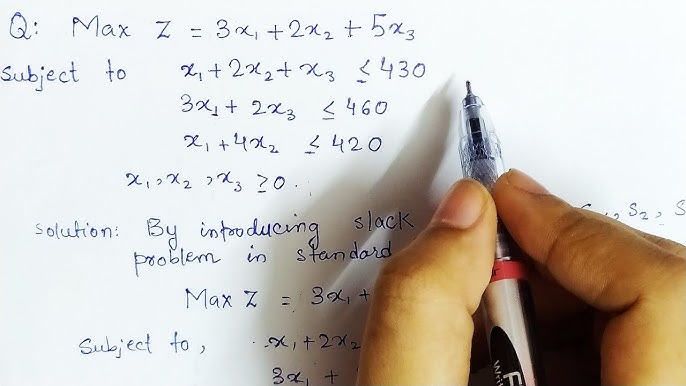 Q: Max Z = 3x₁ + 2x₂ + 5x₃
Subject to x₁ + 2x₂ + x₃ ≤ 430
3x₁ + 2x₃ ≤ 460
x₁ + 4x₂ ≤ 420
x₁, x₂, x₃ ≥ 0.
Solution: By introducing slack S₂, S
problem in standard
Max Z = 3x₁ +
Subject to, x₁ + 2x₂
3x₁ +